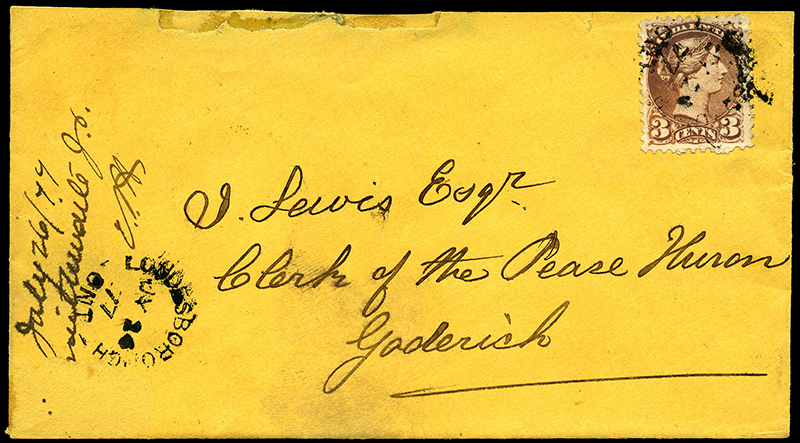 CANADA POSTAGE
3 CENTS 3
I. Lewis Esqr
Clerk of the Pease Huron
Goderich
July 26/77
LONDESBOROUGH ONT
JY 26
77